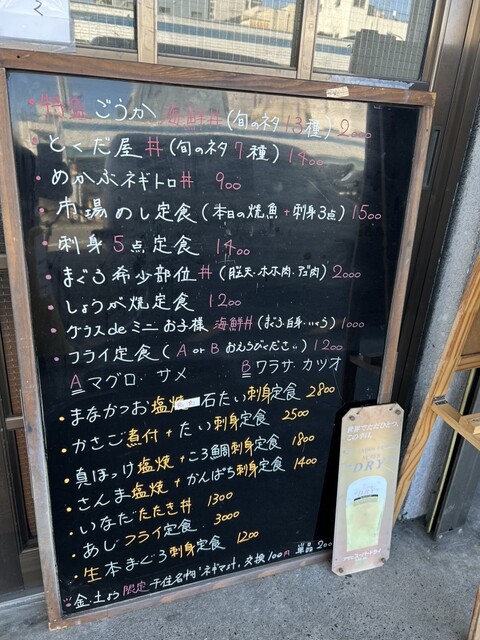 ・特盛ごうか海鮮丼(旬のネタ13種)2000
・とくだ屋丼(旬のネタ7種)1400
・めかぶネギトロ丼 900
・市場めし定食(本日の焼魚+刺身3点)1500
・刺身5点定食 1400
・まぐろ希少部位丼(脳天・ホホ肉・アゴ肉)2000
・しょうが焼定食 1200
・グラスdeミニお子様海鮮丼(まぐろ・白身・いくら)1000
・フライ定食(A or B おえらびください)1200
A マグロ・サメ B ワラサ・カツオ
・まなかつお塩焼 石たい刺身定食 2800
・かさご煮付+たい刺身定食 2500
・真ほっけ塩焼+ころ鯛刺身定食 1800
・さんま塩焼+かんぱち刺身定食 1400
・いなだたたき丼 1300
・あじフライ定食 3000
・生本まぐろ刺身定食 1200
金・土 限定 千住名物"ネギマ汁"交換100円 単品200
辛口
DRY